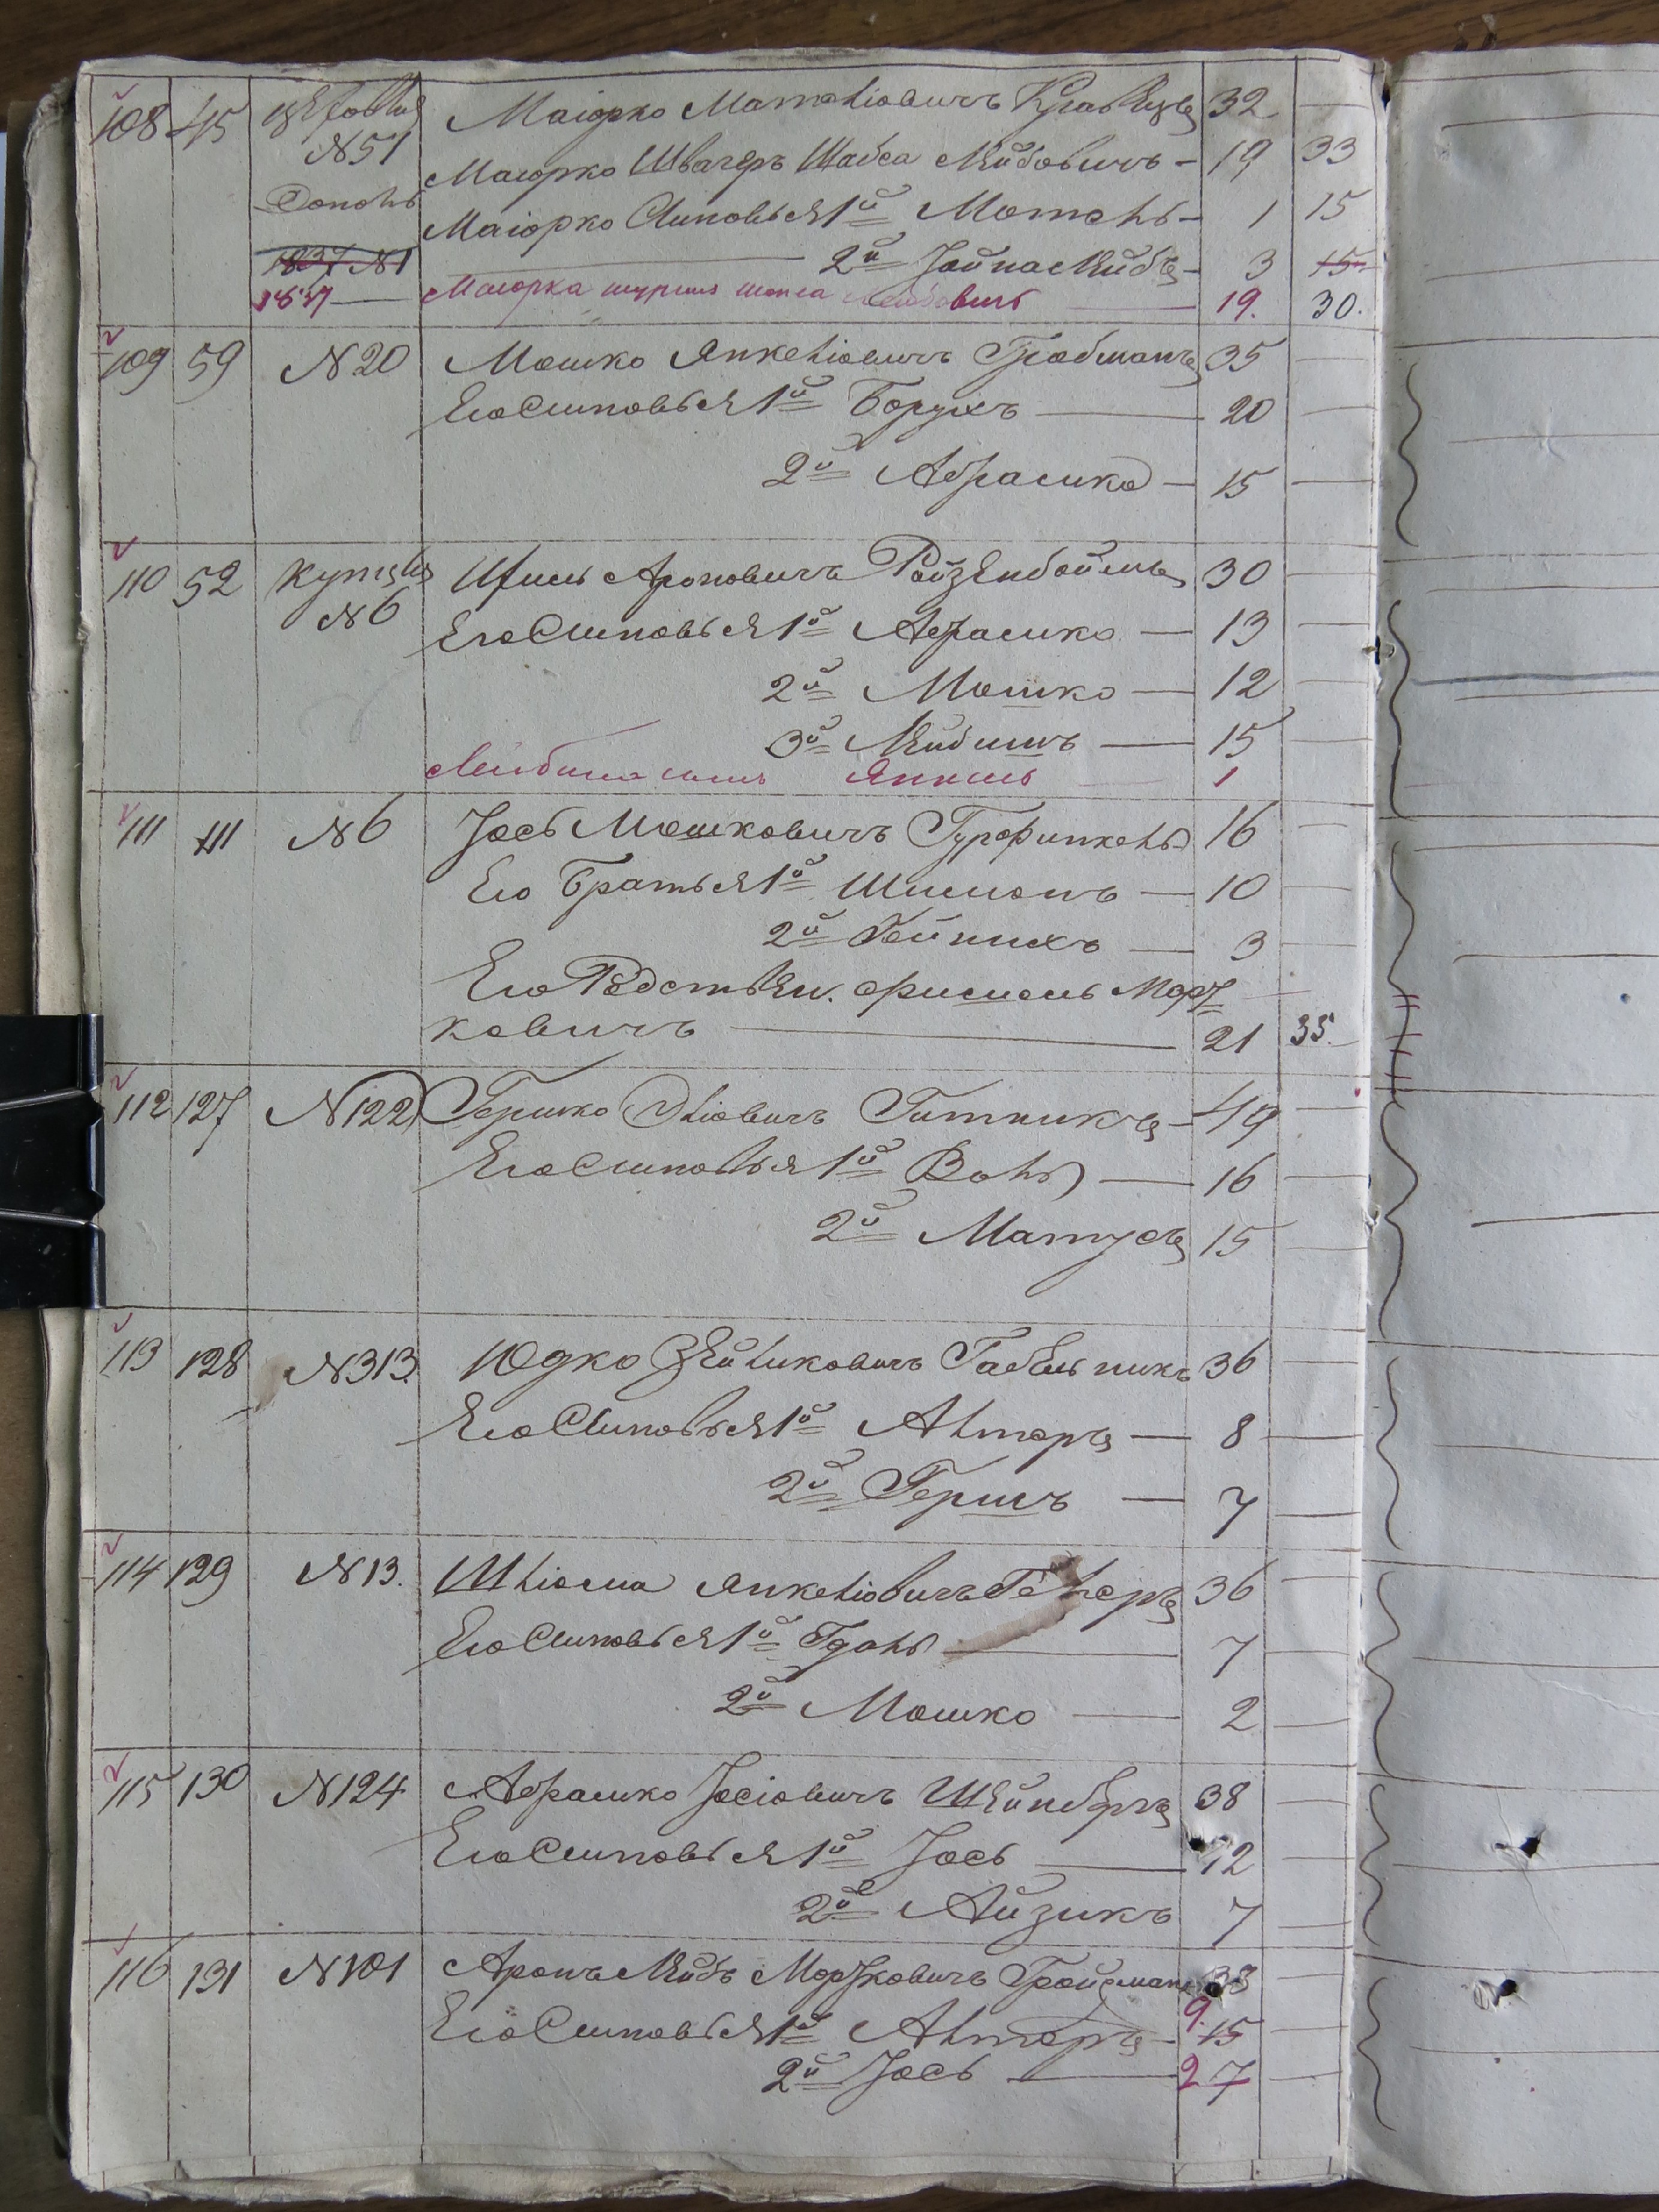 108 45 Маіорко Мателіовичъ Кравецъ 32 —
N 51 Маіорко Швагеръ Шабса Лейбовичъ — 19 33
Маіорко Синовья 1й Мотель — 1 15
1837 N1 2й Іойна Лейбъ — 3 15
1837 — Маіорка Лейбовичъ — 19. 30.
109 59 N 20 Мошко Янкеліовичъ Гробманъ 35 —
Его Синовья 1й Борухъ — 20 —
2й Абрамко — 15 —
110 52 N 6 Ароновичъ Ройзенбоймъ 30 —
Его Синовья 1й Абрамко — 13 —
2й Мошко — 12 —
3й Лейбишъ — 15 —
Лейбиша сынъ — 1
111 111 N 6 Іось Мошковичъ Гурфинкель 16 —
Его Братья 1й Шимонъ — 10 —
2й Гейнихъ — 3 —
Его Родствен. Фишель Мор-
ковичъ — 21 35.
112 127 N 122 Гершко Эліовичъ Гитникъ — 49 —
Его Синовья 1й Воль — 16 —
2й Матусъ 15 —
113 128 N 313. Юдко Зейликовичъ Габельникъ 36 —
Его Синовья 1й Алтеръ — 8 —
2й Гершъ — 7 —
114 129 N 13. Шліома Янкеліовичъ Гелеръ 36 —
Его Синовья 1й Гдаль — 7 —
2й Мошко — 2 —
115 130 N 124 Абрамко Іосіовичъ Шейнбергъ 38 —
Его Синовья 1й Іось — 12 —
2й Айзикъ 7 —
116 131 N 101 Аронъ Лейбъ Морковичъ Гройсманъ 33 —
Его Синовья 1й Алтеръ — 9 15 —
2й Іось — 2 7 —